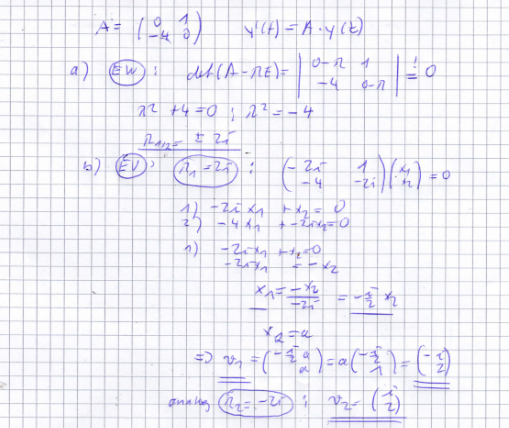 A = (0 1 / -4 0) y'(t) = A · y(t)
a) EW: det(A - λE) = |0-λ 1 / -4 0-λ| ! = 0
λ² + 4 = 0 ; λ² = -4
λ1/2 = ± 2i
b) EV: λ1 = 2i : (-2i 1 / -4 -2i)(x1 / x2) = 0
1) -2i x1 + x2 = 0
2) -4x1 + -2i x2 = 0
1) -2i x1 + x2 = 0
-2i x1 = -x2
x1 = -x2 / -2i = -i/2 x2
x2 = a
=> v1 = (-i/2 a / a) = a(-i/2 / 1) = (-i / 2)
analog λ2 = -2i : v2 = (i / 2)